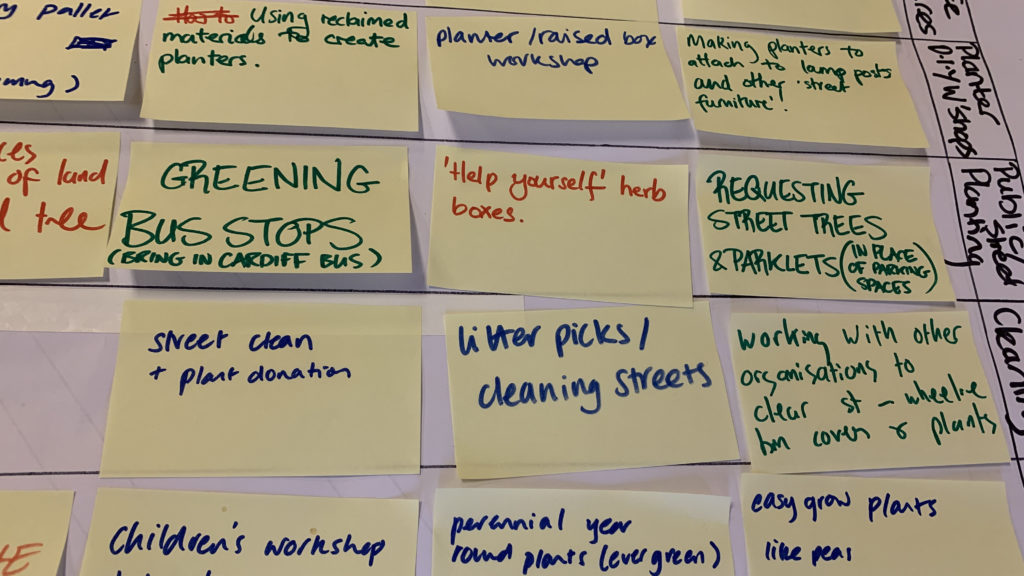 pallet
Using reclaimed
materials to create
planters.
planter / raised box
workshop
Making planters to
attach to lamp posts
and other 'street
furniture'!
Planter
DIY W/shops
of land
tree
GREENING
BUS STOPS
(BRING IN CARDIFF BUS)
'Help yourself' herb
boxes.
REQUESTING
STREET TREES
& PARKLETS (IN PLACE
OF PARKING
SPACES)
Public
Street
Planting
street clean
+ plant donation
litter picks /
cleaning streets
working with other
organisations to
clear st - wheelie
bin covers & plants
Clearing
Children's workshop
perennial year
round plants (evergreen)
easy grow plants
like peas